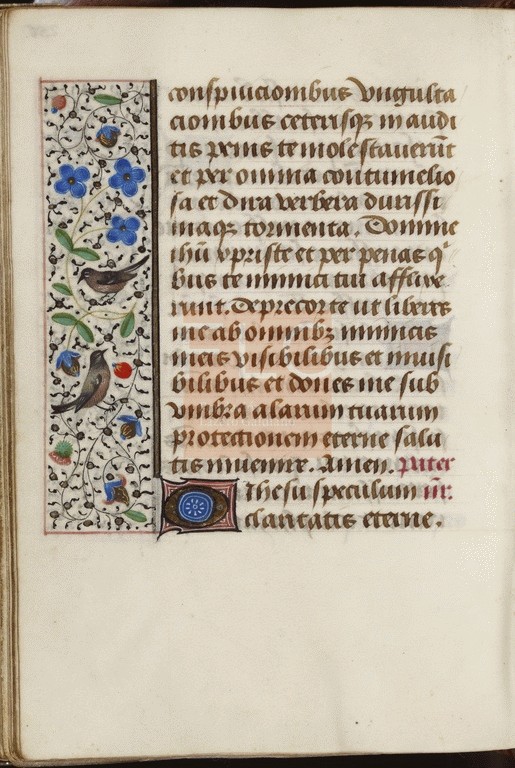 conspuicionibus ungulta
cionibus ceterisqz inaudi
tis penis te molestaverūt
et per omnia contumelio
sa et dira verbera durissi
maqz tormenta. Domine
ihū xpriste et per penas qͥ
bus te inimici tui afflixe
runt. Deprecor te ut liberes
me ab omnibz inimicis
meis visibilibus et invisi
bilibus et dones me sub
umbra alarum tuarum
protectionem eterne salu
tis invenire. Amen. pater
O Ihesu speculum nr̄.
claritatis eterne.